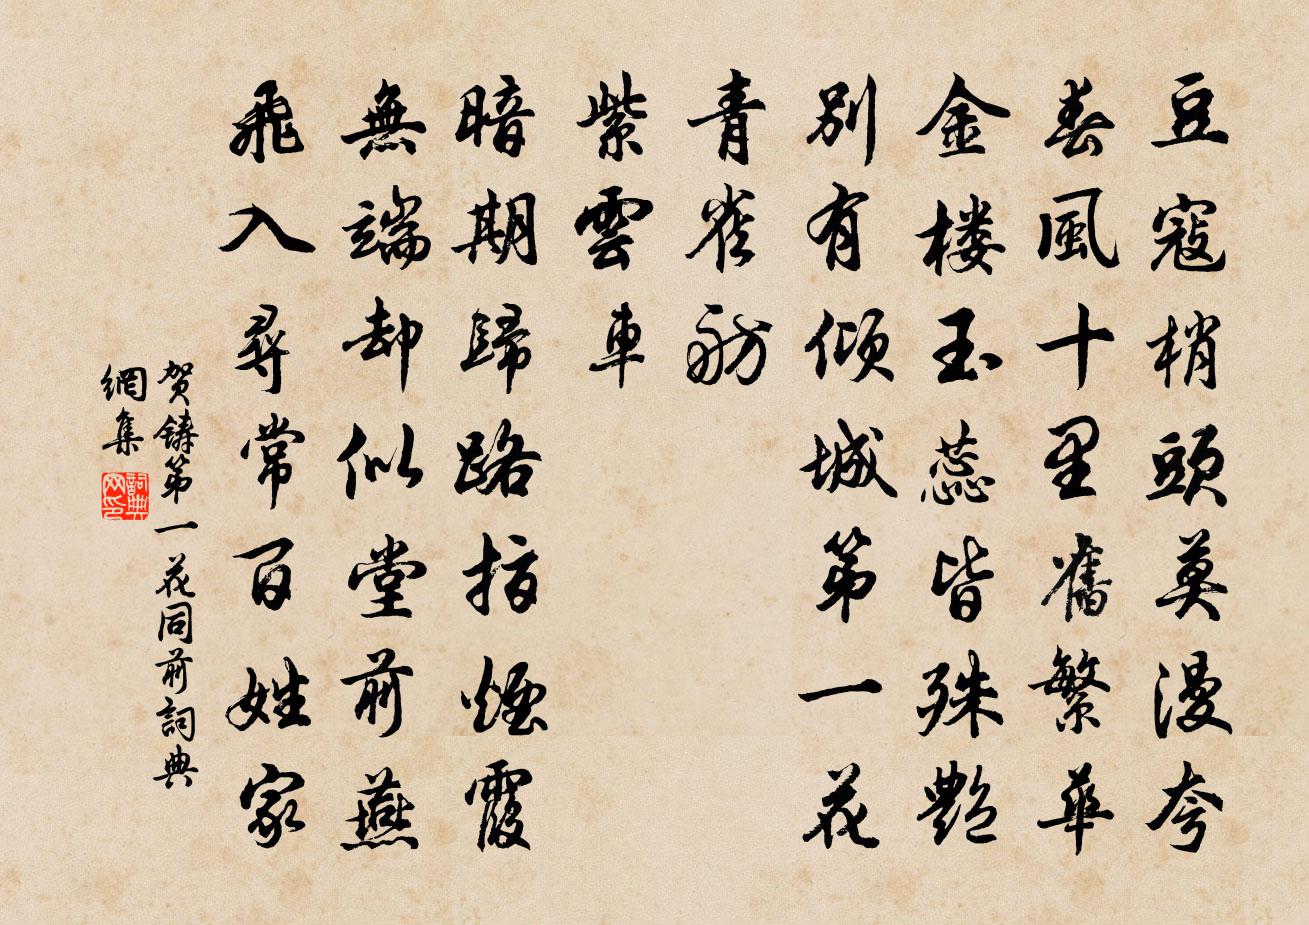 豆寇梢頭莫漫夸
春風十里舊繁華
金楼玉蕊皆殊艶
別有傾城第一花
青雀舫
紫雲車
暗期歸路指煙霞
無端却似堂前燕
飛入尋常百姓家
贺鑄第一花同前詞典
網集
詞典
网印